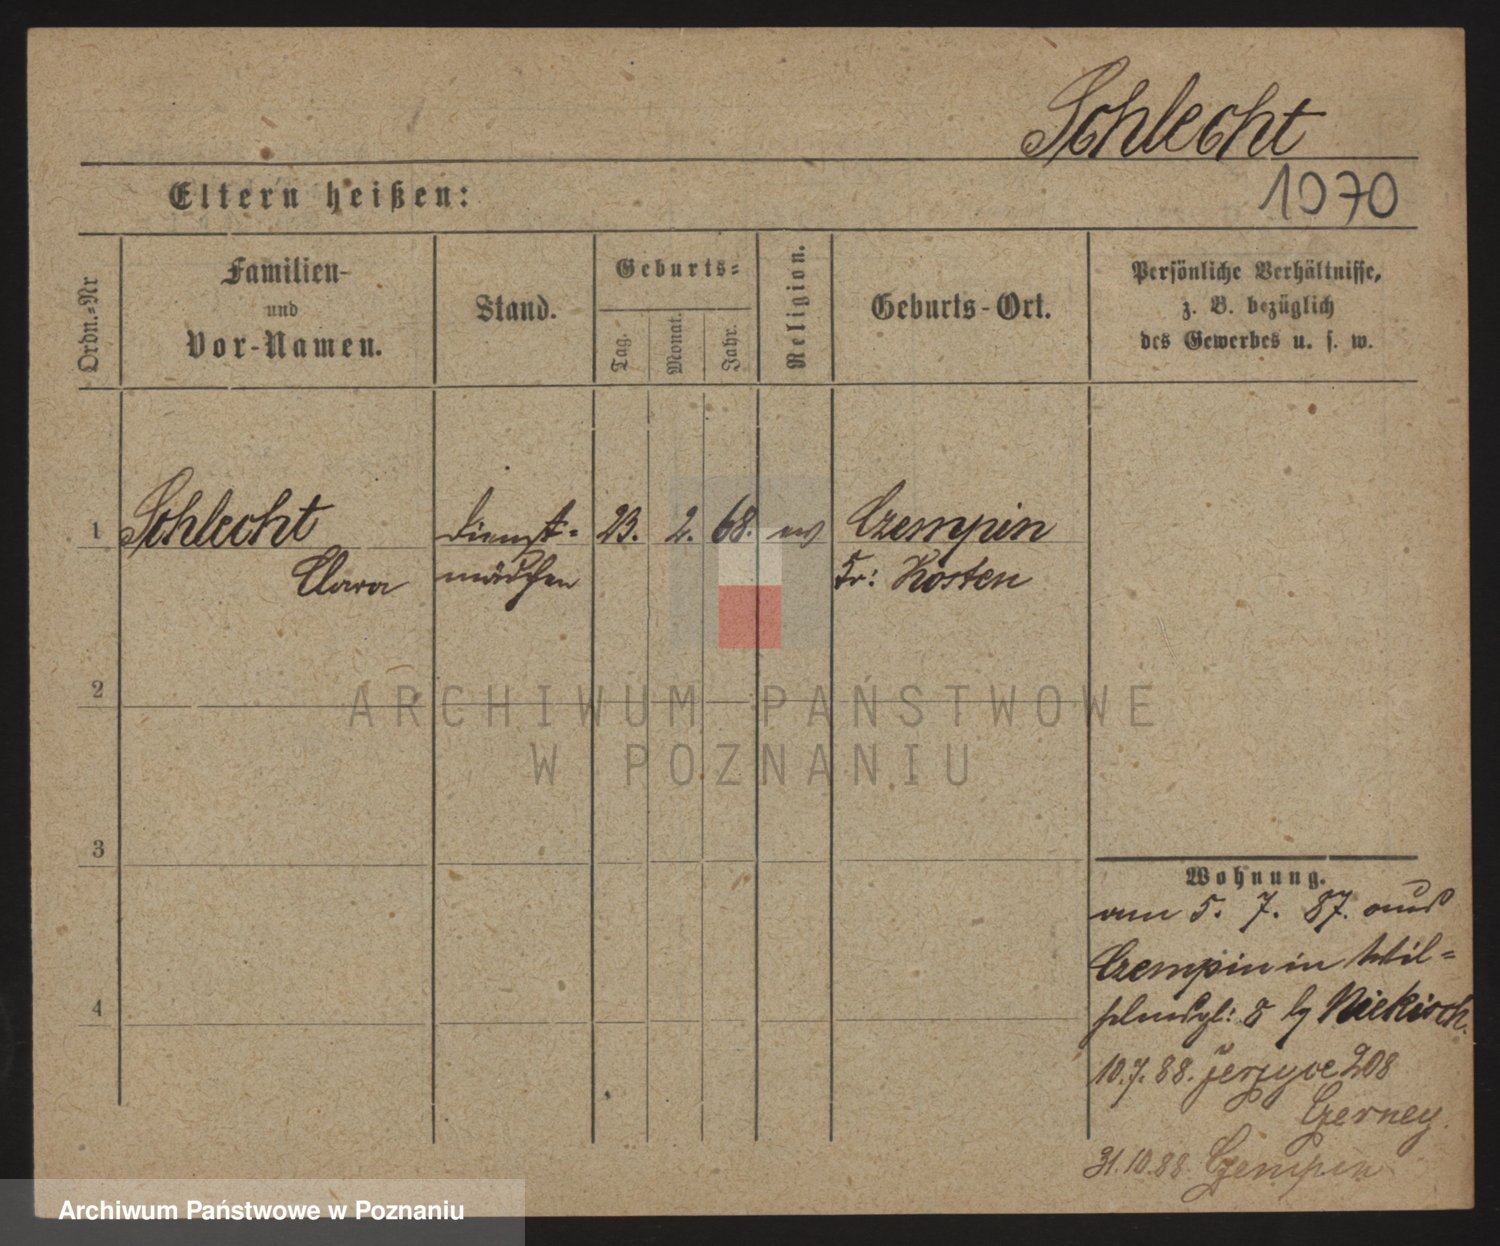 Schlecht
1070
Eltern heißen:
Ordn.-Nr
Familien-
und
Vor-Namen.
Stand.
Geburts-
Tag.
Monat.
Jahr.
Religion.
Geburts-Ort.
Persönliche Verhältnisse,
z. B. bezüglich
des Gewerbes u. s. w.
1 Schlecht Dienst- 23. 2. 68. ev Czempin
Clara mädchen Kr: Kosten
2
3
4
ARCHIWUM PAŃSTWOWE
W POZNANIU
Wohnung.
am 5. 7. 87. aus
Czempin in Wil-
8 Niekisch.
10.7.88. Jerzyce 208
Czerney.
31.10.88. Czempin
Archiwum Państwowe w Poznaniu